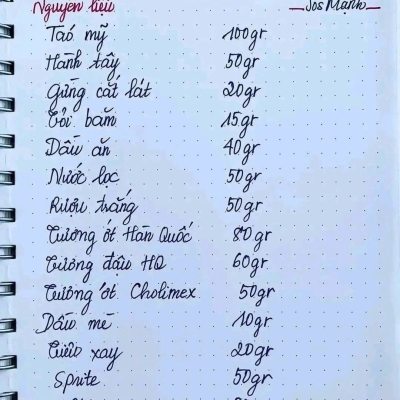 Nguyên liệu Jos Mạnh
Táo mỹ 100gr
Hành tây 50gr
Gừng cắt lát 20gr
Tỏi băm 15gr
Dầu ăn 40gr
Nước lọc 50gr
Rượu trắng 50gr
Tương ớt Hàn Quốc 80gr
Tương đậu HQ 60gr
Tương ớt Cholimex 50gr
Dầu mè 10gr
Tiêu xay 20gr
Sprite 50gr